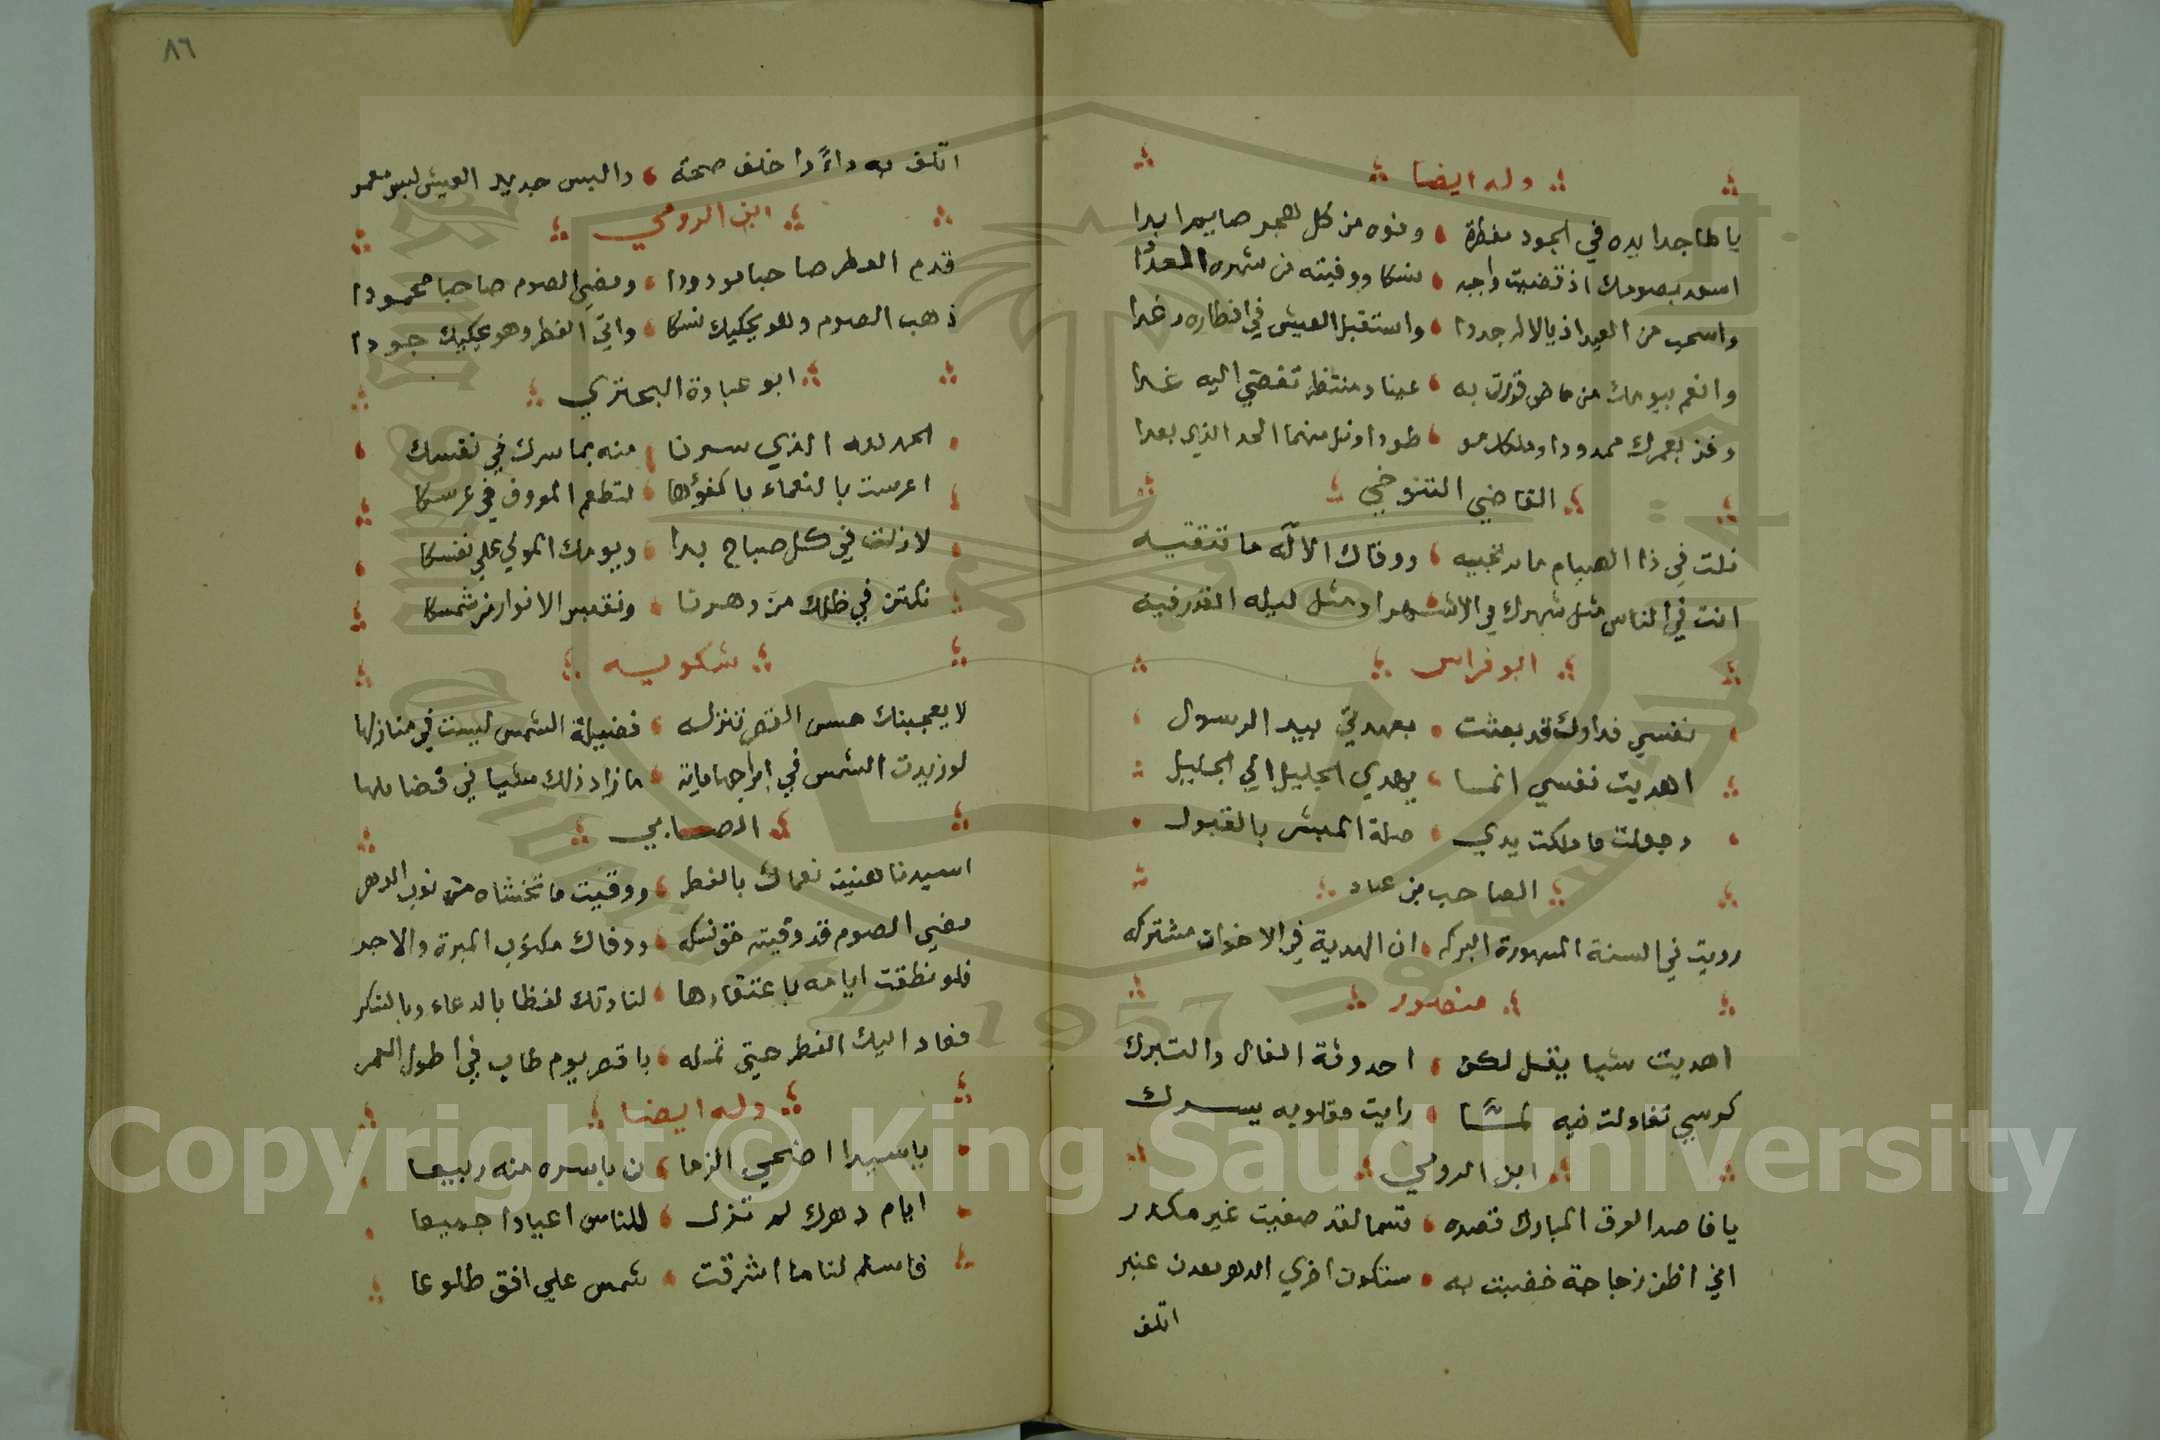 وله ايضا
يا ماجدا يده في الجود مفطرة وفوه من كل هجر صايم ابدا
اسعد بصومك اذ قضيت واجبه نسكا ووفيته من شهره العددا
واسحب من العيد اذيالا له جددا واستقبل العيش في افطاره رغدا
وانعم بيومك من ماض قررت به عينا ومنتظر تفضي اليه غدا
وفز بعمرك ممدودا وملكك طودا ونل منهما الحد الذي بعدا
القاضي التنوخي
نلت في ذا الصيام ما ترتجيه ووقاك الاله ما تتقيه
انت في الناس مثل شهرك في الاشهر او مثل ليله القدر فيه
ابو فراس
نفسي فداوك قد بعثت بعهدتي بيد الرسول
اهديت نفسي انما يهدي الجليل الي الجليل
وجعلت ما ملكت يدي صلة المبشر بالقبول
الصاحب بن عباد
رويت في السنة المشهورة البركه ان الهدية في الاخوان مشتركه
منصور
اهديت شيا يقل لكن احدوثة الفال والتبرك
كرسي تفاولت فيه لما رايت مقلوبه يسرك
ابن الرومي
يا فاصد العرق المبارك فصده قسما لقد صفيت غير مكدر
اني اظن زجاجة خضبت به ستكون اخري الدهر معدن عنبر
اتلف
٨٦
اتلف به داءً واخلف صحة والبس جديد العيش لبس معمر
ابن الرومي
قدم الفطر صاحبا مودودا ومضي الصوم صاحبا محمودا
ذهب الصوم وهو يحكيك نسكا واتي الفطر وهو يحكيك جودا
ابو عبادة البحتري
الحمد لله الذي سرنا منه بما سرك في نفسك
اعرست بالنعماء باكفؤها لتطعم المعروف في عرسكا
لا زلت في كل صباح بدا ويومك الموفي علي نفسكا
نكتن في ظلك من دهرنا ونقبس الانوار من شمسكا
شكويه
لا يعجبنك حسن القصر تنزله فضيلة الشمس ليست في منازلها
لو زيدت الشمس في ابراجها ماية ما زاد ذلك شيا في فضايلها
الصابي
اسيدنا هنيت نعماك بالفطر ووقيت ما تخشاه من نوب الدهر
مضي الصوم قد وفيته حق نسكه ووفاك مكتوب المبرة والاجر
فلو نطقت ايامه باعتقادها لنادتك لفظا بالدعاء وبالشكر
فعاد اليك الفطر حتي تمله باقصر يوم طاب في اطول العمر
وله ايضا
يا سيدا اضحي الزما ن باسره منه ربيعا
ايام دهرك لم تزل للناس اعيادا جميعا
فاسلم لنا ما اشرقت شمس علي افق طلوعا
Copyright © King Saud University
1957